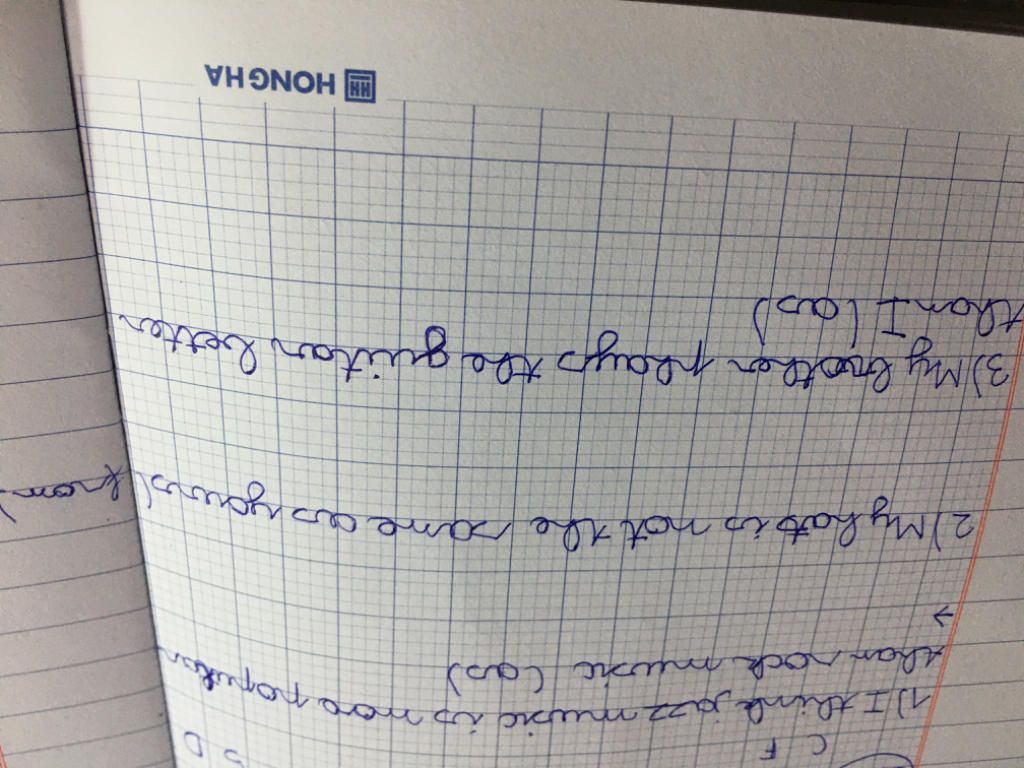 C F
S D
1) I think jazz music is moro popular
than rock music (as)
→
2) My hat is not the same as yours (from)
3) My brother plays the guitar better
than I (as)
HONG HA